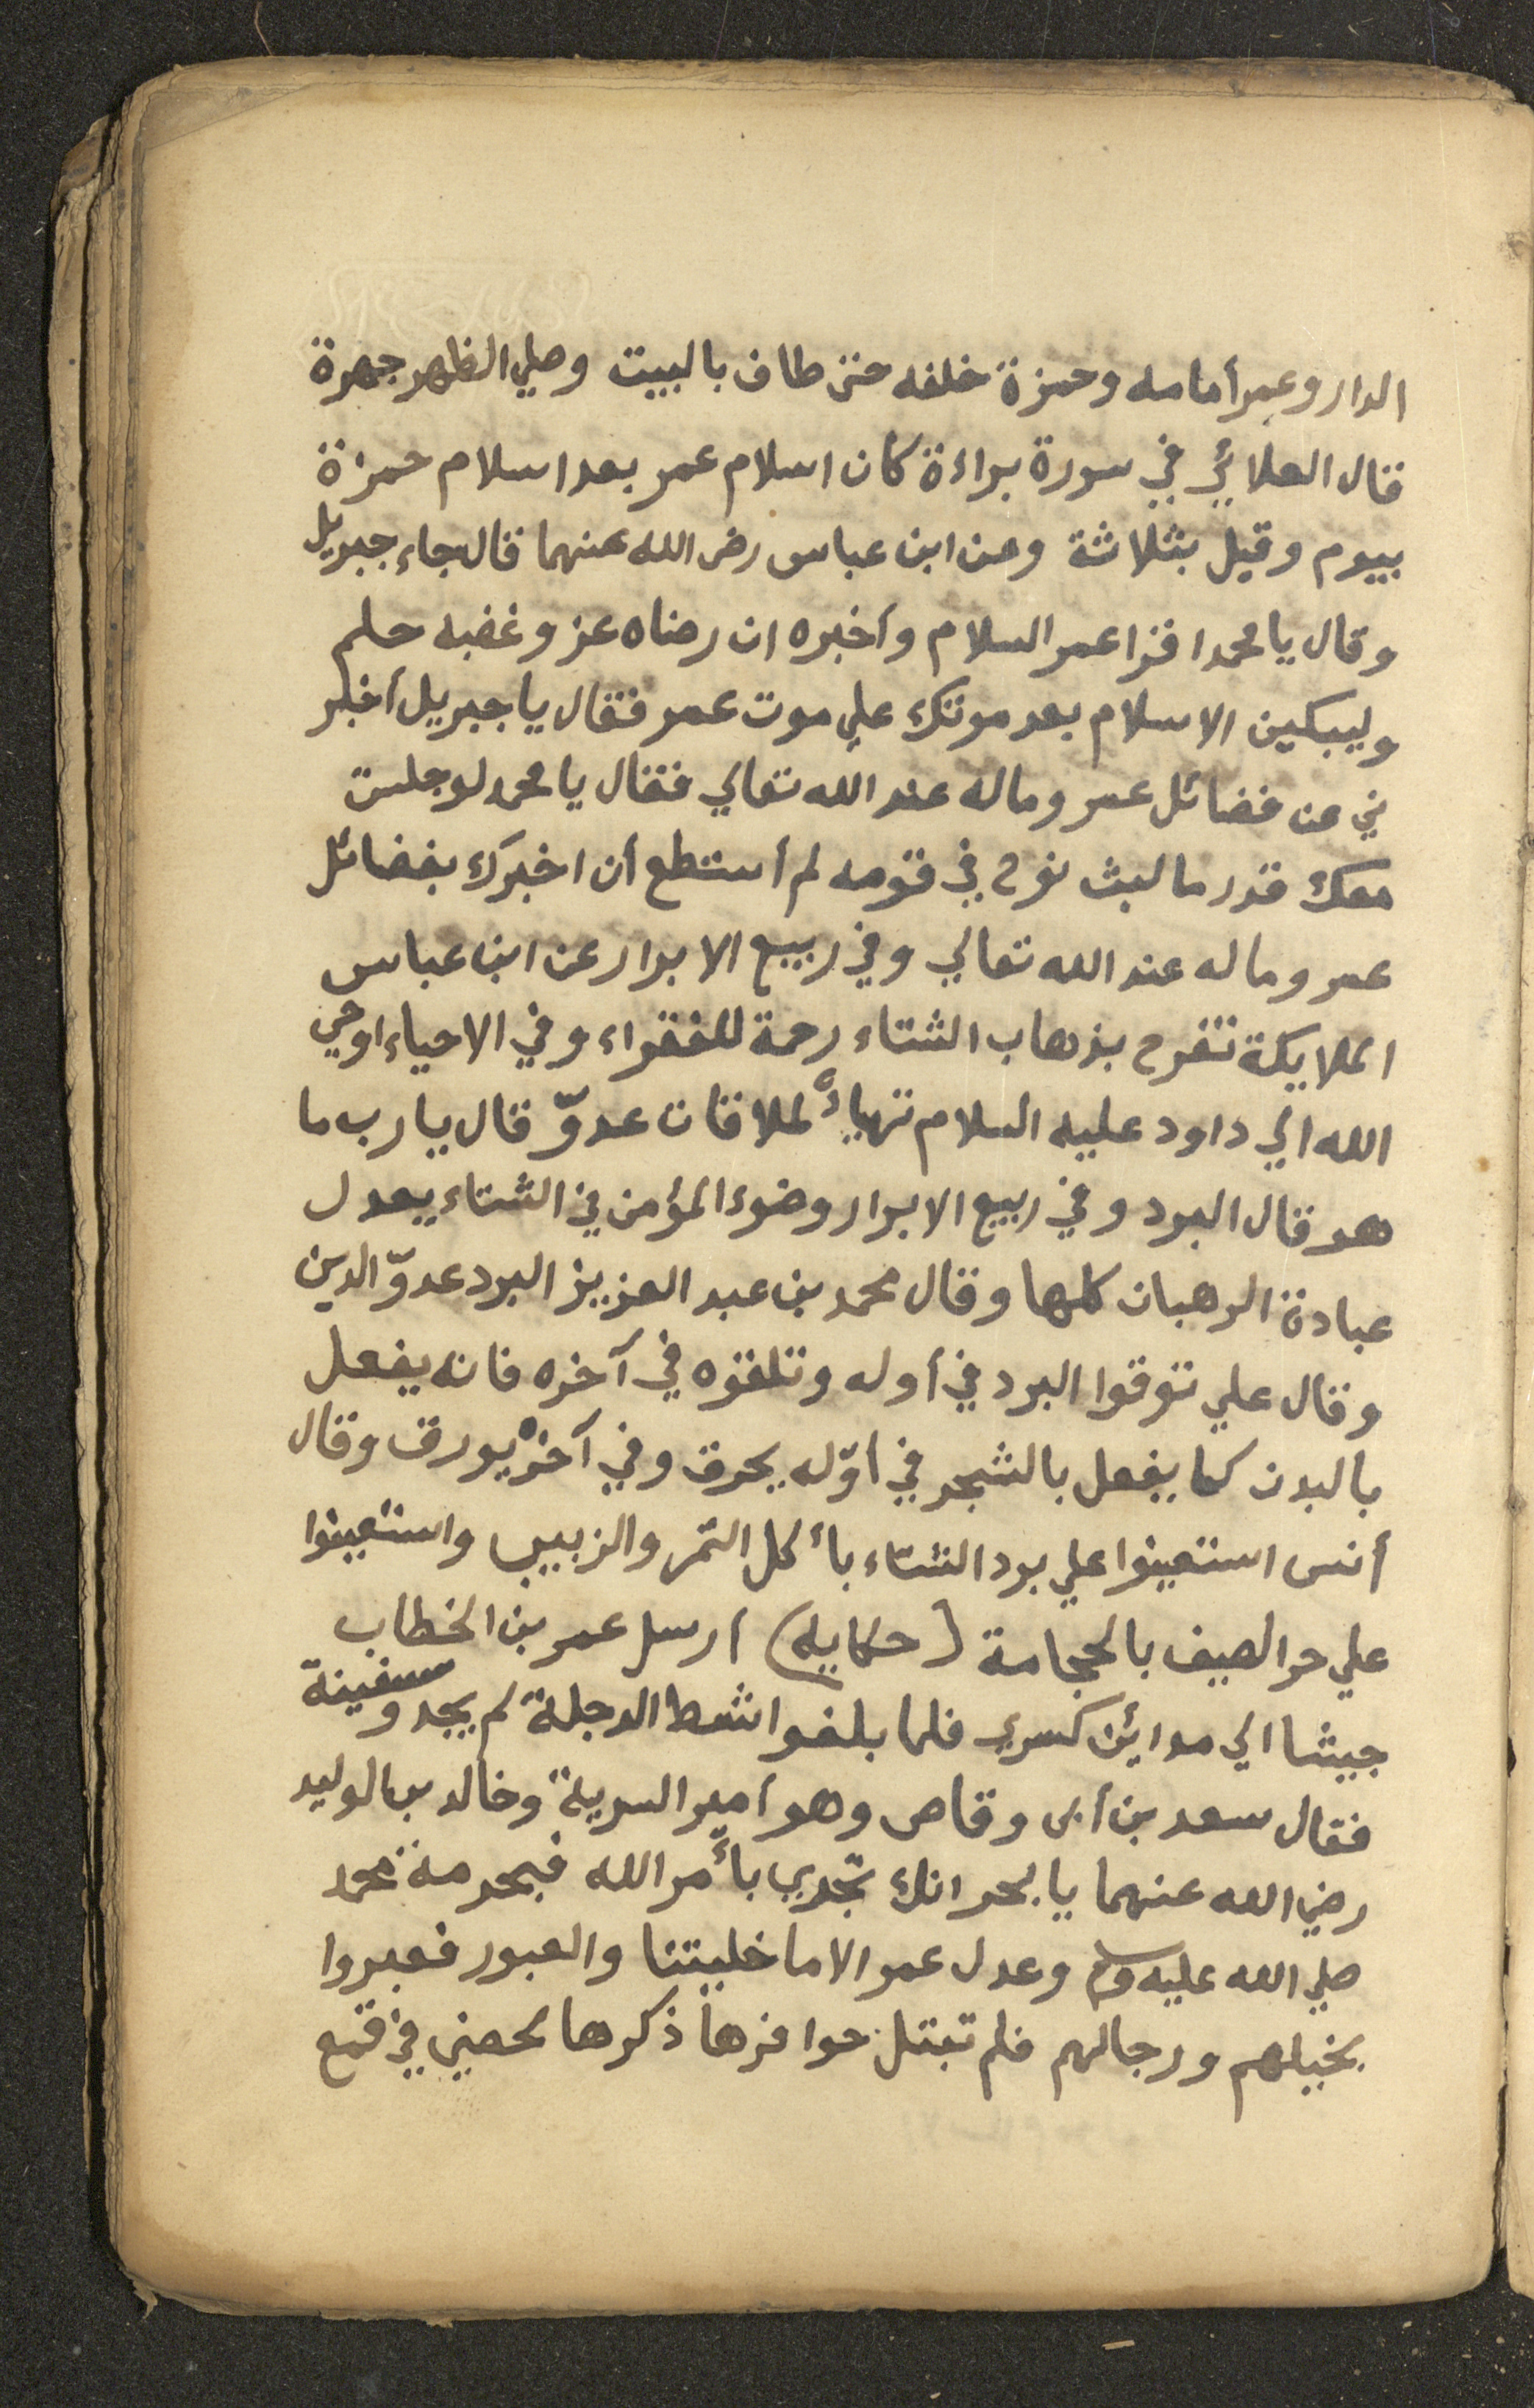 الدار وعمر أمامه وحمزة خلفه حتى طاف بالبيت وصلي الظهر جهرة
قال العلائي في سورة براءة كان اسلام عمر بعد اسلام حمزة
بيوم وقيل بثلاثة وعن ابن عباس رضي الله عنهما قال جاء جبريل
وقال يا محمد اقرا عمر السلام وأخبره ان رضاه عز وغضبه حلم
وليبكين الاسلام بعد موتك علي موت عمر فقال يا جبريل أخبر
ني عن فضائل عمر وماله عند الله تعالي فقال يا محمد لو جلست
معك قدر ما لبث نوح في قومه لم أستطع أن اخبرك بفضائل
عمر وما له عند الله تعالي وفي ربيع الابرار عن ابن عباس
الملايكة تفرح بذهاب الشتاء رحمة للفقراء وفي الاحياء اوحي
الله الي داود عليه السلام تهيأ لملاقات عدوّ قال يا رب ما
هو قال البرد وفي ربيع الابرار وضوء المؤمن في الشتاء يعدل
عبادة الرهبان كلها وقال محمد بن عبد العزيز البرد عدوّ الدين
وقال علي توقوا البرد في أوله وتلقوه في آخره فانه يفعل
بالبدن كما يفعل بالشجر في أوّله يحرق وفي آخره يورق وقال
أنس استعينوا علي برد الشتاء بأكل التمر والزبيب واستعينوا
علي حر الصيف بالحجامة (حكاية) أرسل عمر بن الخطاب
جيشا الي مدائن كسري فلما بلغوا شط الدجلة لم يجدو سفينة
فقال سعد بن أبى وقاص وهو أمير السرية وخالد بن الوليد
رضي الله عنهما يا بحر انك تجري بأمر الله فبحرمة محمد
صلي الله عليه وسلم وعدل عمر الا ما خليتنا والعبور فعبروا
بخيلهم ورجالهم فلم تبتل حوافرها ذكرها لحصني في قمع